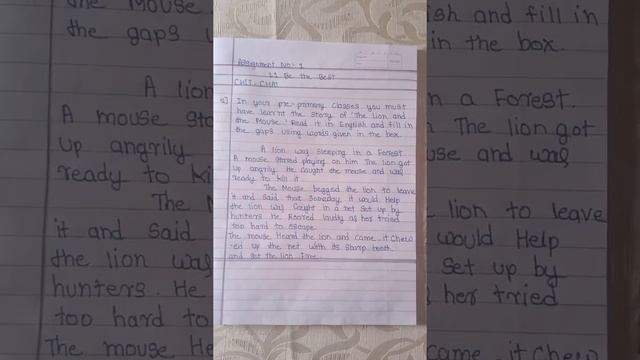 Assignment No:- 1
1.1 Be the Best
CHIT-CHAT
In your pre-primary classes you must
have learnt the story of 'The lion and
the Mouse.' Read it in English and fill in
the gaps using words given in the box.
A lion was sleeping in a Forest.
A mouse stared playing on him The lion got
up angrily. He caught the mouse and was
ready to kill it.
The Mouse begged the lion to leave
it and said that someday it would Help
the lion was caught in a net set up by
hunters. He Roared loudly as her tried
too hard to escape.
The mouse Heard the lion and came. it Chew
ed up the net with its sharp teeth
and got the lion Free.